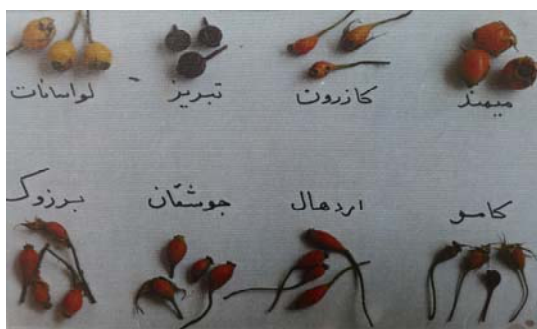 میمند کازرون تبریز لواسانات
کامو اردهال جوشقان برزوک